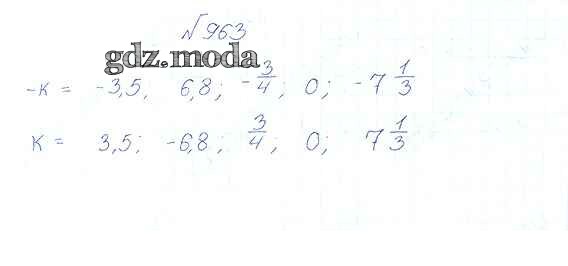 №963
gdz.moda
-к = -3,5, 6,8; -3/4; 0; -7 1/3
к = 3,5; -6,8; 3/4; 0; 7 1/3